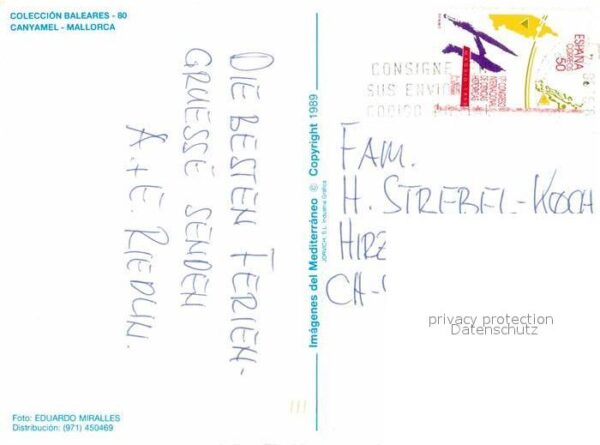 COLECCIÓN BALEARES - 80
CANYAMEL - MALLORCA
DIE BESTEN FERIEN-
GRUESSE SENDEN
A. + E. RIEDLIN.
Imágenes del Mediterráneo © Copyright 1989
JORVICH, S.L. Industria Gráfica
ESPAÑA
CORREOS
50
CONSIGNE
SUS ENVIO
CODIGO
FAM.
H. STREBEL-KOCH
HIRZ
CH-
privacy protection
Datenschutz
Foto: EDUARDO MIRALLES
Distribución: (971) 450469